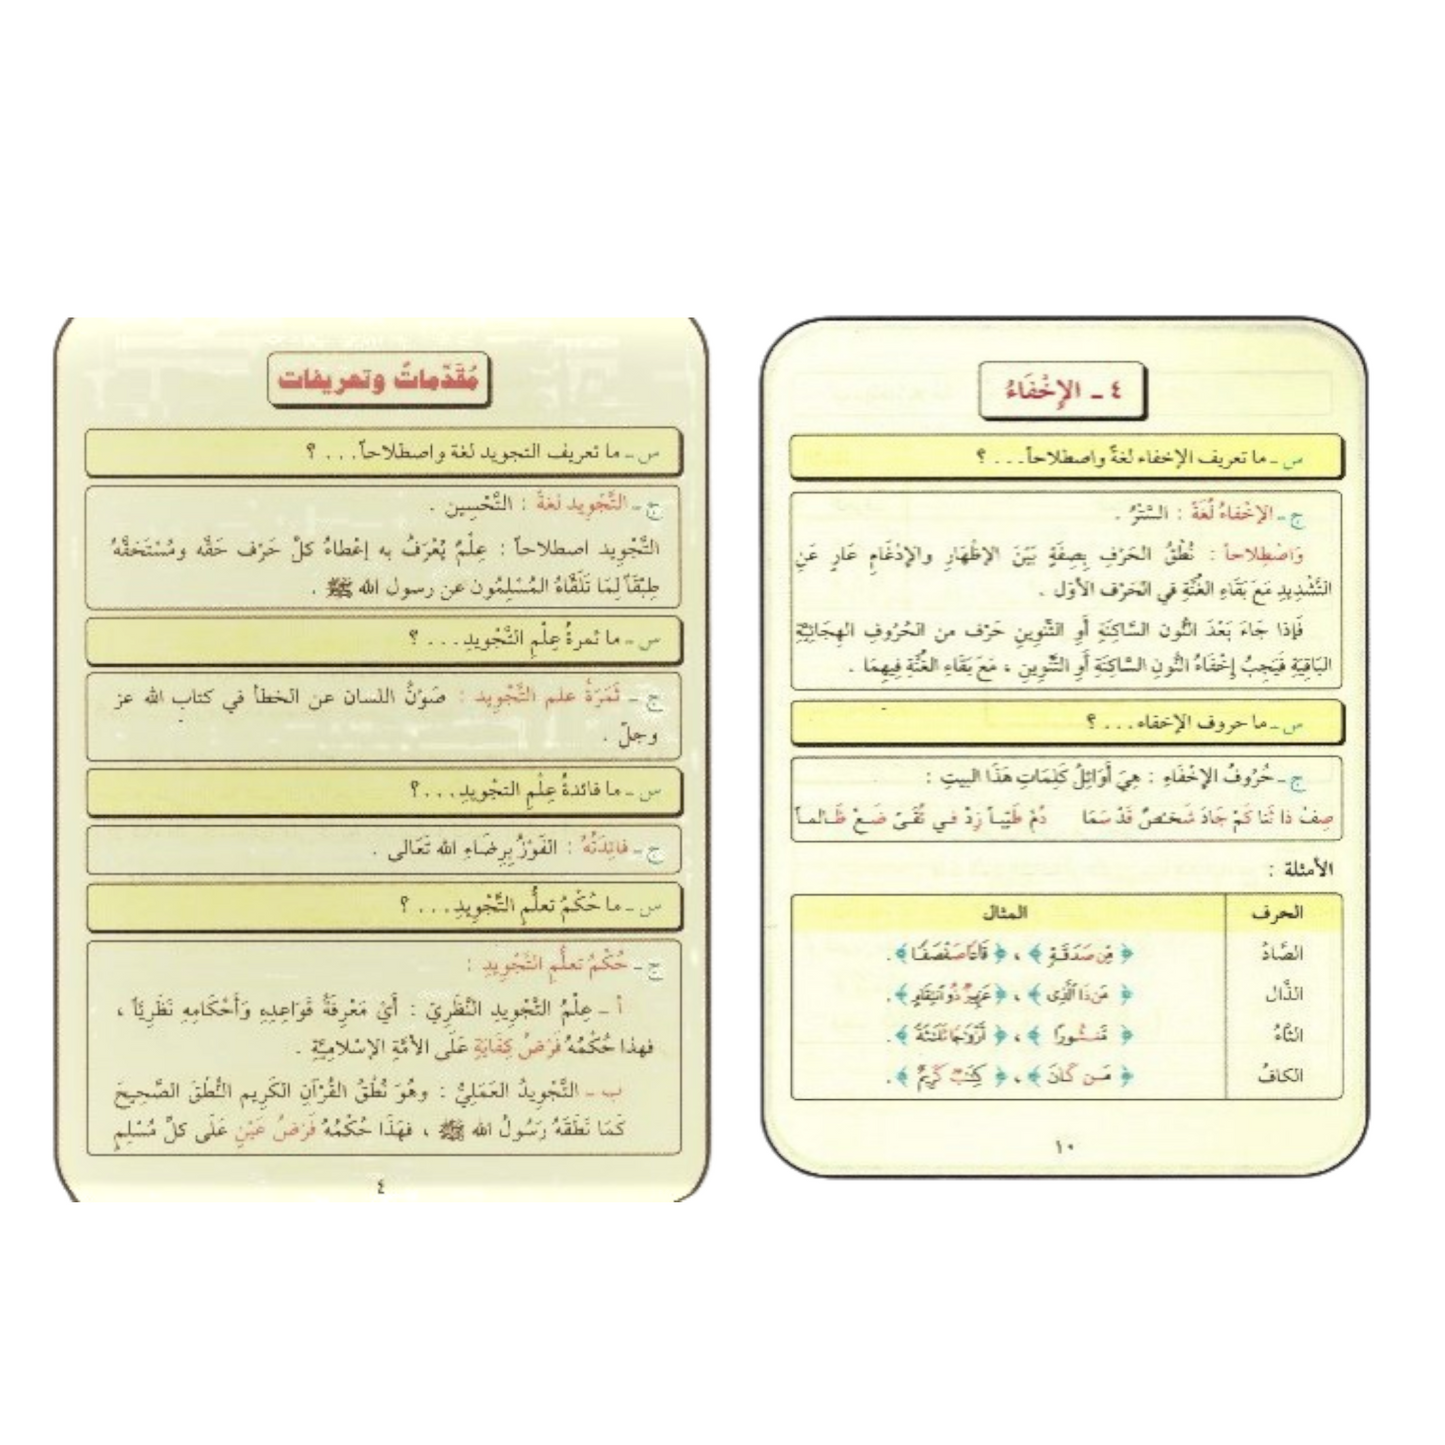 ٤ ـ الإِخْفَاءُ
س ـ ما تعريف الإخفاء لغةً واصطلاحاً. . . ؟
ج ـ الإخْفاءُ لُغَةً : السَّتْرُ .
وَاصْطِلاحاً : نُطْقُ الحَرْفِ بِصِفَةٍ بَيْنَ الإظْهَارِ والإدْغَامِ عَارٍ عَنِ
التَّشْدِيدِ مَعَ بَقَاءِ الغُنَّةِ في الحَرْف الأوّل .
فَإذا جَاءَ بَعْدَ النُّون السَّاكِنَةِ أَوِ التَّنْوِينِ حَرْف من الحُرُوفِ الهِجَائِيَّةِ
البَاقِيَةِ فَيَجِبُ إخْفَاءُ النُّونِ السَّاكِنَةِ أَوِ التَّنْوِينِ ، مَعَ بَقَاءِ الغُنَّةِ فِيهِمَا .
س ـ ما حروف الإخفاء. . . ؟
ج ـ حُرُوفُ الإخْفَاءِ : هِيَ أَوَائِلُ كَلِمَاتِ هَذَا البيتِ :
صِفْ ذا ثَنا كَمْ جَادَ شَخصٌ قَدْ سَمَا دُمْ طَيِّباً زِدْ في تُقَىً ضَعْ ظَالماً
الأمثلة :
الحرف المثال
الصَّادُ ﴿ مِّن صَدَقَةٍ ﴾ ، ﴿ قَاعًا صَفْصَفًا ﴾ .
الذَّال ﴿ مَن ذَا ٱلَّذِى ﴾ ، ﴿ عَزِيزٌ ذُو ٱنتِقَامٍ ﴾ .
الثَّاءُ ﴿ مَّنثُورًا ﴾ ، ﴿ أَزْوَٰجًا ثَلَٰثَةً ﴾ .
الكافُ ﴿ مَن كَانَ ﴾ ، ﴿ كِتَٰبٌ كَرِيمٌ ﴾ .
١٠
مُقَدّماتٌ وتعريفات
س ـ ما تعريف التجويد لغة واصطلاحاً. . . ؟
ج ـ التَّجْوِيد لغةً : التَّحْسِين .
التَّجْوِيد اصطلاحاً : عِلْمٌ يُعْرَفُ به إعْطاءُ كلِّ حَرْف حَقَّه ومُسْتَحَقَّهُ
طِبْقَاً لِمَا تَلَقَّاهُ المُسْلِمُون عن رسول الله ﷺ .
س ـ ما ثمرةُ عِلْمِ التَّجْوِيدِ. . . ؟
ج ـ ثَمَرَةُ علم التَّجْوِيد : صَوْنُ اللسان عن الخطأ في كتاب الله عز
وجلّ .
س ـ ما فائدةُ عِلْمِ التجْوِيدِ. . .؟
ج ـ فائِدَتُهُ : الفَوْزُ بِرِضَاءِ الله تَعَالى .
س ـ ما حُكْمُ تعلُّمِ التَّجْوِيدِ. . . ؟
ج ـ حُكْمُ تعلُّمِ التَّجْوِيدِ :
أ ـ عِلْمُ التَّجْوِيدِ النَّظَرِيّ : أَيْ مَعْرِفَةُ قَوَاعِدِهِ وَأَحْكَامِهِ نَظَرِيَّاً ،
فهذا حُكْمُهُ فَرْضُ كِفَايَةٍ عَلَى الأمَّةِ الإسْلامِيَّةِ .
ب ـ التَّجْوِيدُ العَمَلِيُّ : وهُوَ نُطْقُ القُرْآنِ الكَرِيم النُّطْقَ الصَّحِيحَ
كَمَا نَطَقَهُ رَسُولُ الله ﷺ ، فهَذَا حُكْمُهُ فَرْضُ عَيْنٍ عَلَى كلِّ مُسْلِمٍ
٤